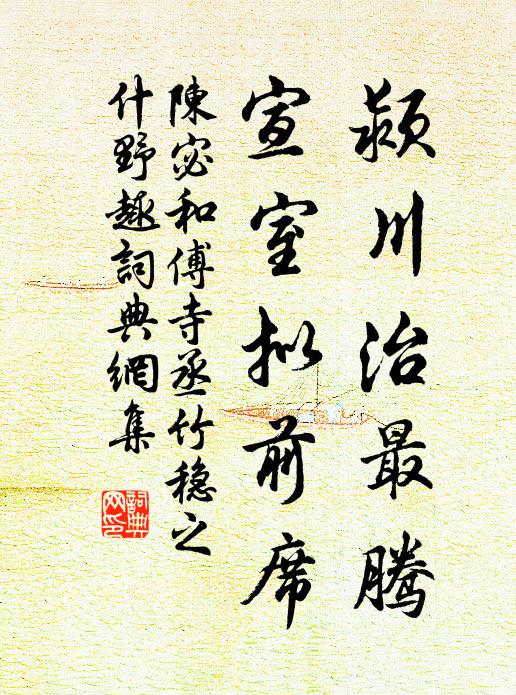 潁川治最騰
宣室拟前席
陳宓和傅寺丞竹穏之
什野趣詞典網集
詞典
网印